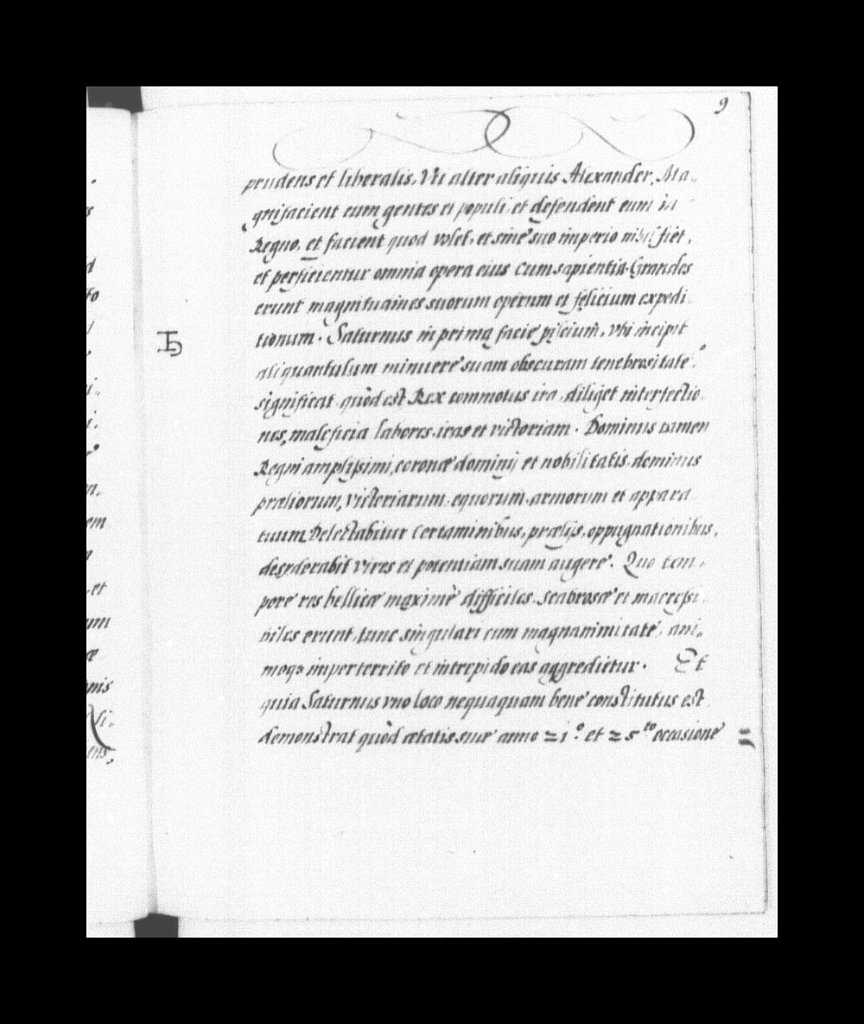 9
prudens et liberalis. Vt alter aliquis Alexander. Ma-
gnifacient eum gentes et populi et defendent eum in
Regno, et facient quod volet, et sine suo imperio nihil fiet,
et perficientur omnia opera eius cum sapientia. Grandes
erunt magnitudines suorum operum et felicium expedi-
tionum. Saturnus in prima facie piscium, vbi incipit
aliquantulum minuere suam obscuram tenebrositate
significat, quòd est Rex commotus ira, diliget interfectio-
nes, maleficia labores iras et victoriam. Dominus tamen
Regni amplissimi, coronæ dominij et nobilitatis dominus
præliorum, victoriarum equorum armorum et appara-
tuum. Delectabitur certaminibus, prælijs, oppugnationibus,
desyderabit vires et potentiam suam augere. Quo tem-
pore res bellicæ maximè difficiles, scabrosæ et inaccessi-
biles erunt, tunc singulari cum magnanimitate, ani-
moq3 imperterrito et intrepido eas aggredietur. Et
quia Saturnus vno loco nequaquam bene constitutus est
demonstrat quòd ætatis suæ anno 21.º et 25.to occasione =